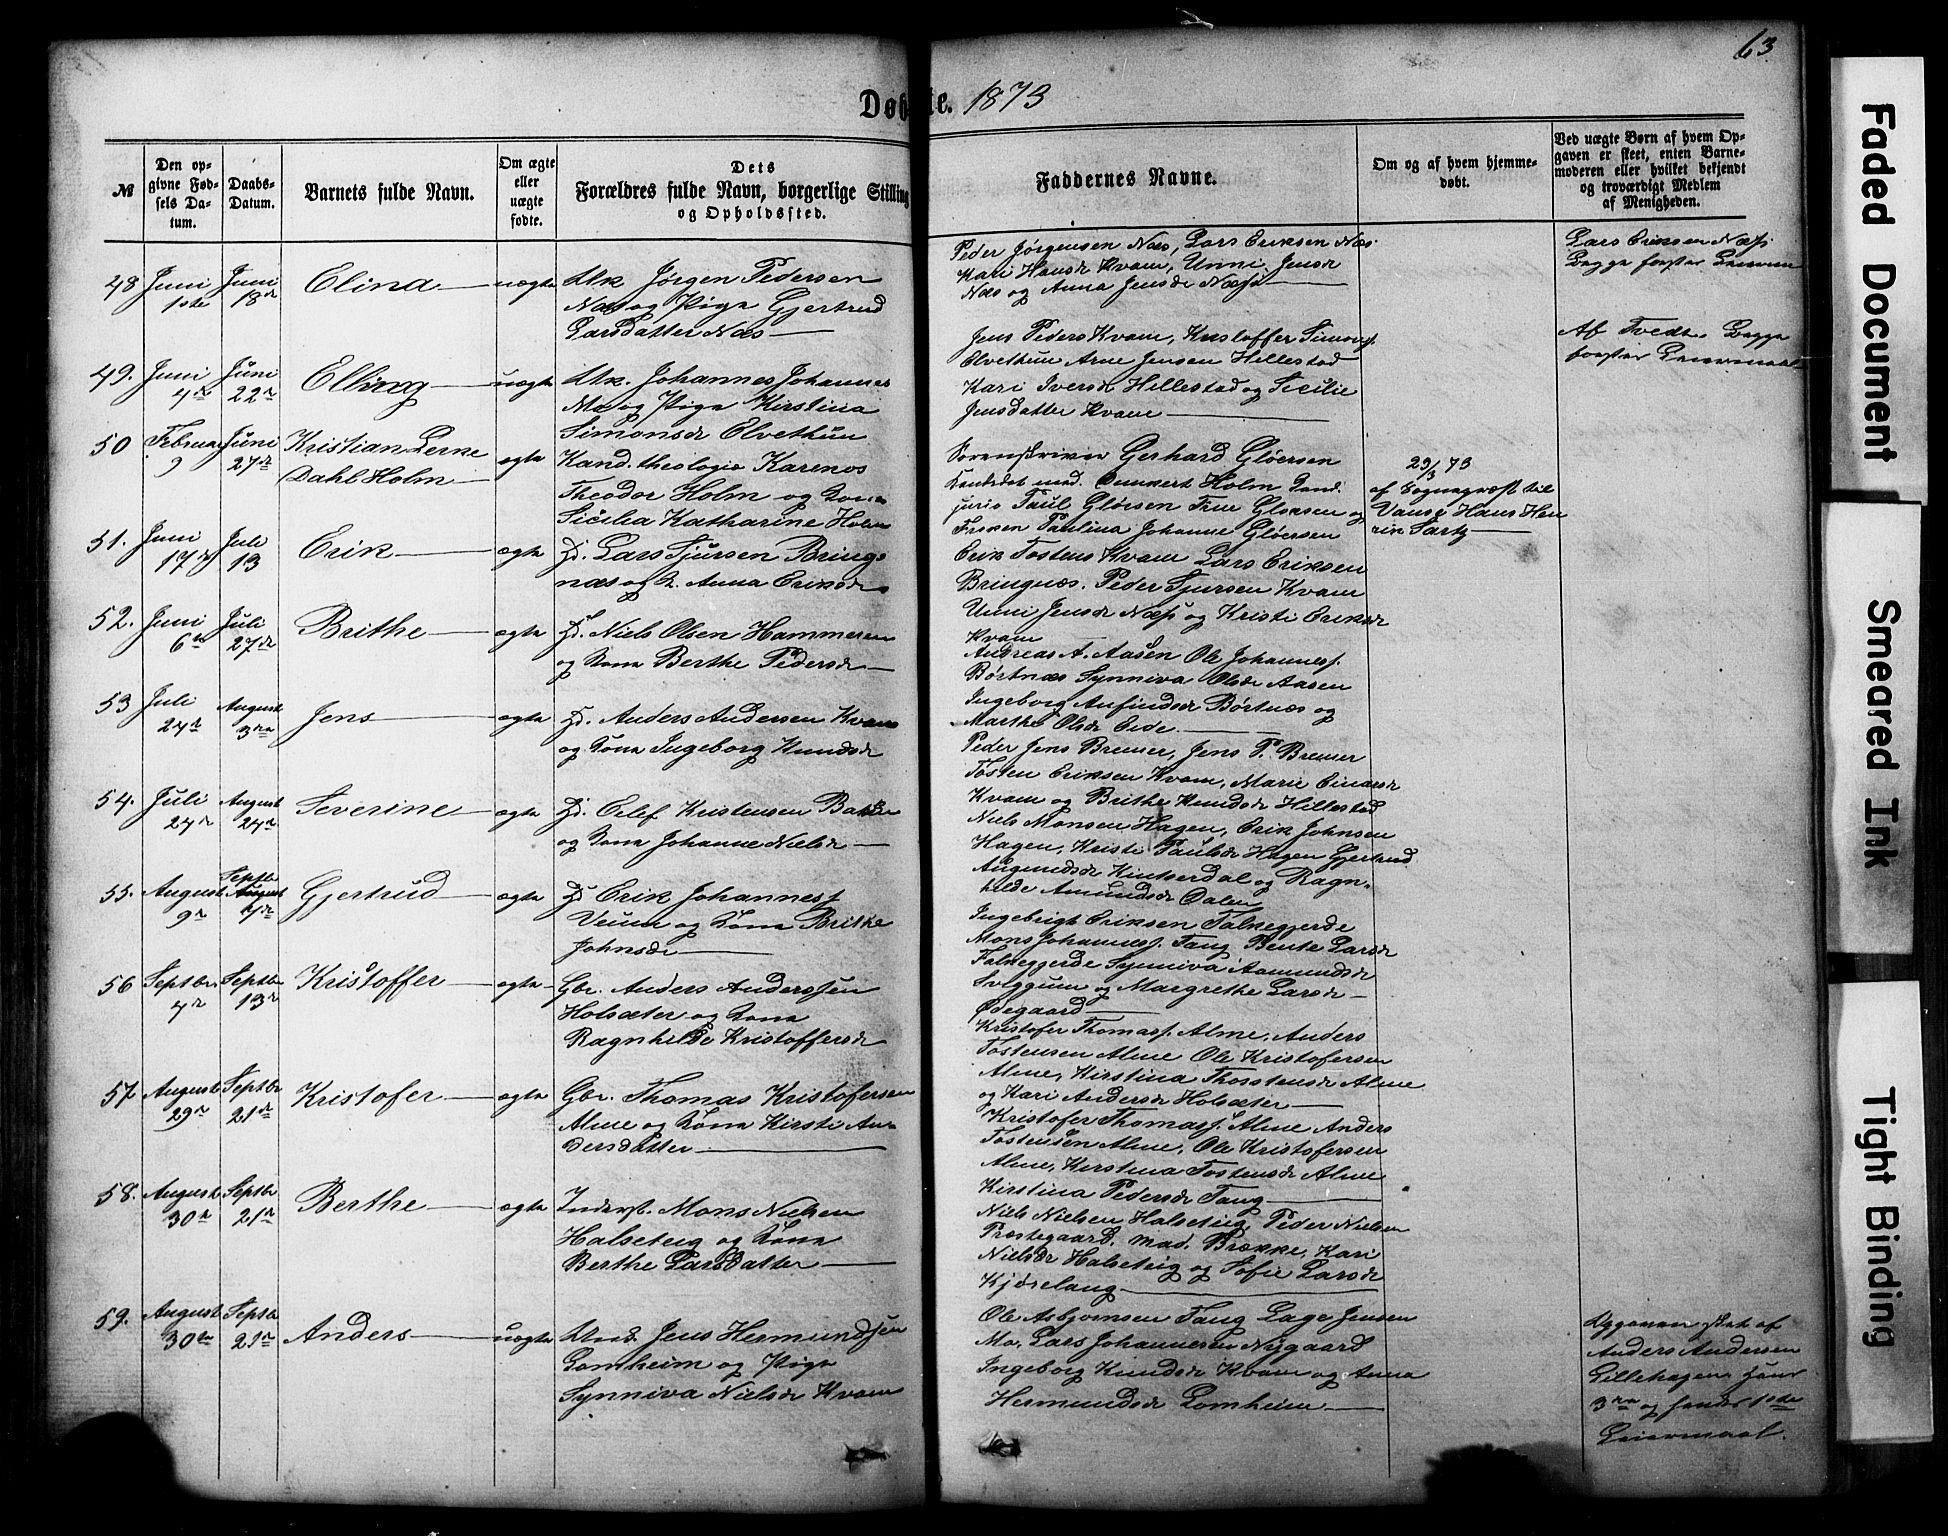 63
Døbte. 1873
№
Den op-
givne Fød-
sels Da-
tum.
Daabs-
Datum.
Barnets fulde Navn.
Om ægte
eller
uægte
fødte.
Dets
Forældres fulde Navn, borgerlige Stilling
og Opholdssted.
Faddernes Navne.
Om og af hvem hjemme-
døbt.
Ved uægte Børn af hvem Op-
gaven er skeet, enten Barne-
moderen eller hvilket bekjendt
og troværdigt Medlem
af Menigheden.
48 Juni 1ste Juni 18de Elina uægte
Uk Jørgen Pedersen
Næs og Pige Gjertrud
Larsdatter Næs
Peder Jørgensen Næs, Lars Eriksen Næs
Kari Hansdr Kvam, Unni Jensdr
Næs og Anna Jensdr Næss
Lars Eriksen Næss
Begge første
49. Juni 4de Juni 22de Elling uægte
Uk. Johannes Johannes
Mo og Pige Kirstina
Simonsdr Elvethun
Jens Peders Kvam, Kristoffer Simons
Elvethun Arne Jensen Hillestad
Kari Iversdr Hillestad og Secilie
Jensdatter Kvam
Af Tvedt. Begge
første Leiermaal
50 Februar 9 Juni 27de Kristian Lerne
Dahl Holm ægte
Kand. theologie Karenus
Theodor Holm og Kone
Sicilia Katharine Holm
Sorenskriver Gerhard Gløersen
Kandidat med. Holm Kand.
juris Paul Gløersen Frue Gløersen og
Frøken Paulina Johanne Gløersen
23/3 73
af Sognepræst til
Vanse Hans Hen
rik Sartz
51. Juni 17de Juli 13 Erik ægte
Gd. Lars Sjursen Bring
næs og K. Anna Eriksdr
Erik Tostens Kvam Lars Eriksen
Bringnæs. Peder Sjursen Kvam
Unni Jensdr Næss og Kristi Eriksdr
Kvam
52. Juni 6te Juli 27de Brithe ægte
Gd. Niels Olsen Hammeren
og Kone Berthe Pedersdr
Andreas A. Aasen Ole Johanness.
Børtnæs Synniva Olsdr Aasen
Ingeborg Anfindsdr Børtnæs og
Marthe Olsdr Eide
53 Juli 24de August 3die Jens ægte
Gd. Anders Andersen Kvam
og Kone Ingeborg Knudsdr
Peder Jens Bremer, Jens P. Bremer
Tosten Eriksen Kvam, Marie Einarsdr
Kvam og Brithe Knudsdr Hillestad
54. Juli 24de August 24de Severine ægte
Gd. Elef Kristensen Bakken
og Kone Johanne Nielsdr
Niels Monsen Hagen, Erik Johnsen
Hagen, Kristi Paulsdr Hagen Gjertrud
Augundsdr Kinserdal og Ragn-
hilde Amundsdr Dalen
55. August 9de Septbr 7de Gjertrud ægte
Gd Erik Johanness
Veum og Kone Brithe
Johnsdr
Ingebrigt Eriksen Falkegjerde
Mons Johanness. Fang Bente Larsdr
Falkegjerde Synniva Aamundsdr
Sviggum og Margrethe Larsdr
Ødegaard
56 Septbr 7de Septbr 13de Kristoffer ægte
Gbr. Anders Anderssen
Holsæter og Kone
Ragnhilde Kristoffersdr
Kristofer Thomass. Alme, Anders
Tostensen Alme Ole Kristofersen
Alme, Kirstina Thorstensdr Alme
og Kari Andersdr Holsæter
57 August 29de Septbr 21de Kristofer ægte
Gbr. Thomas Kristofersen
Alme og Kone Kirsti An-
dersdatter
Kristofer Thomass. Alme Anders
Tostensen Alme, Ole Kristofersen
Alme, Kirstina Tostensdr Alme
Kirstina Pedersdr Fang
58. August 30te Septbr 21de Berthe ægte
Inderst. Mons Nielsen
Halseteig og Kone
Berthe Larsdatter
Niels Nielsen Halseteig, Peder Nielsen
Præstegaard. Mad. Brække, Kari
Nielsdr Halseteig og Sofie Larsdr
Kjørelang
59. August 30te Septbr 21de Anders uægte
Ung. Jens Hermundsen
Lomheim og Pige
Synniva Nielsdr Kvam
Ole Asbjørnsen Fang Lage Jensen
Mo, Lars Johannesen Nygaard
Ingeborg Knudsdr Kvam og Anna
Hermundsdr Lomheim
Opgaven skeet af
Anders Andersen
Lillehagen, hans
3die og hendes 1ste
Leiermaal.
Faded Document
Smeared Ink
Tight Binding